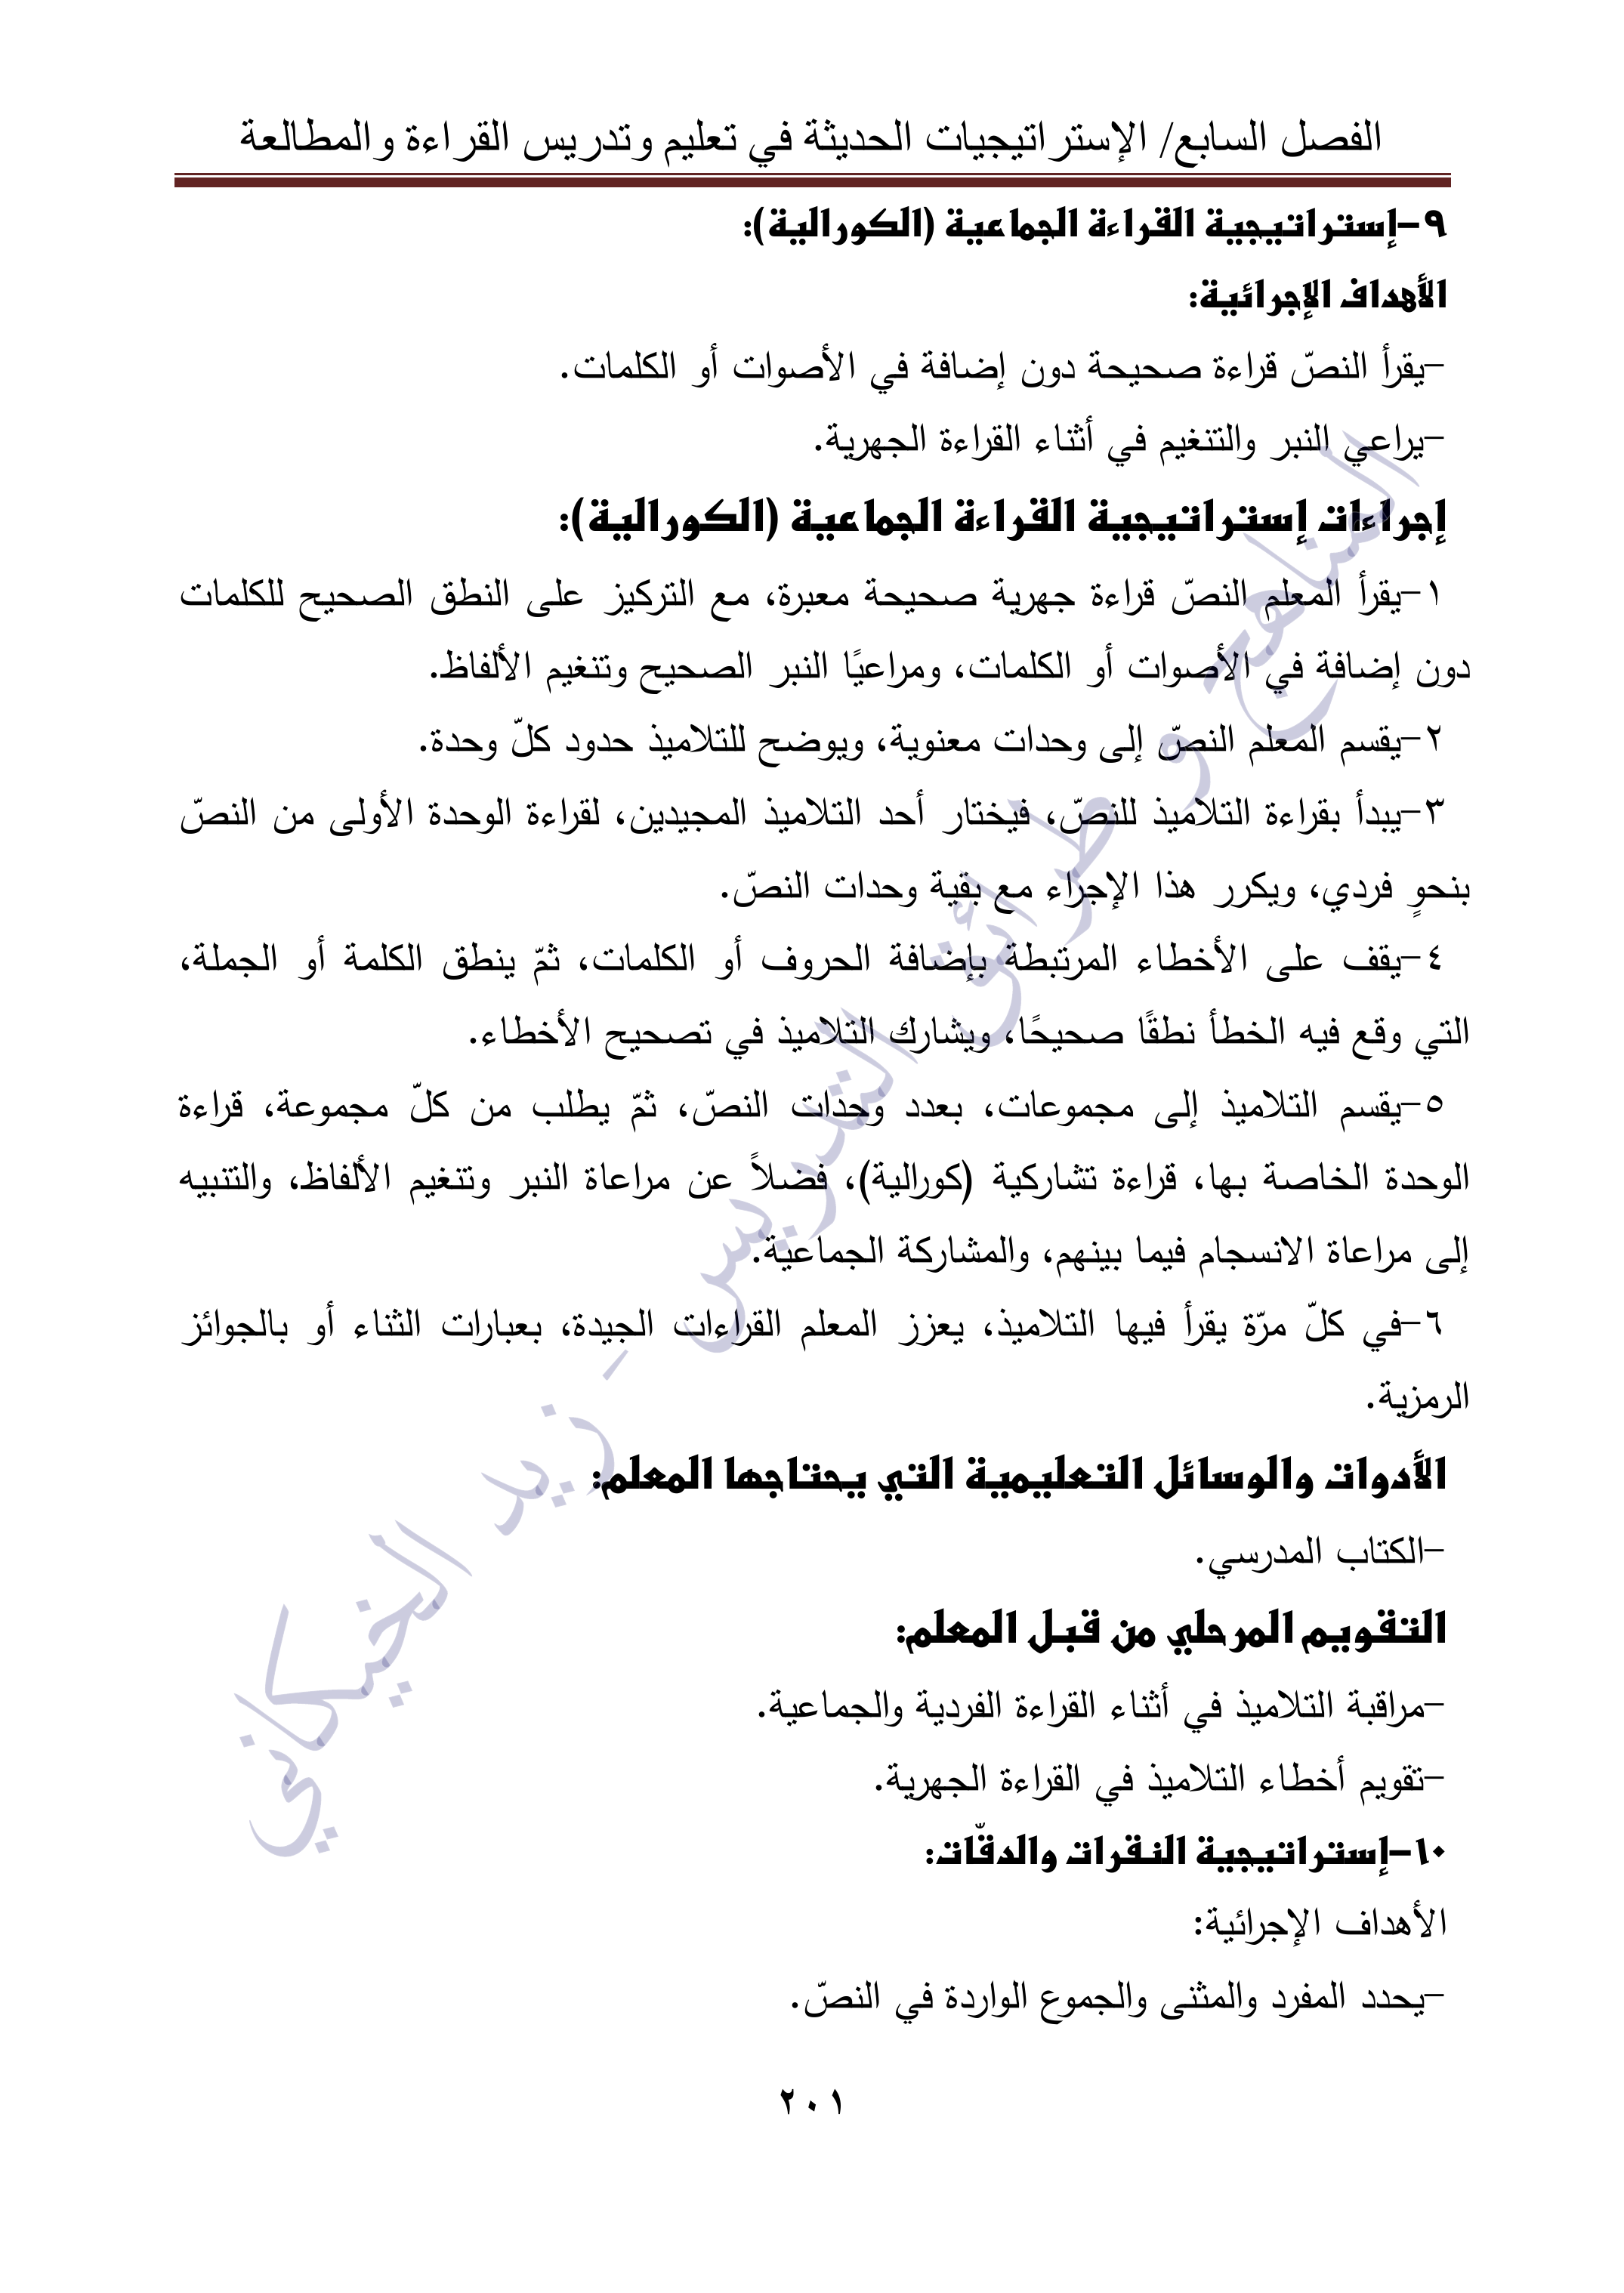 الفصل السابع/ الإستراتيجيات الحديثة في تعليم وتدريس القراءة والمطالعة
٩-إستراتيجية القراءة الجماعية (الكورالية):
الأهداف الإجرائية:
-يقرأ النصّ قراءة صحيحة دون إضافة في الأصوات أو الكلمات.
-يراعي النبر والتنغيم في أثناء القراءة الجهرية.
إجراءات إستراتيجية القراءة الجماعية (الكورالية):
١-يقرأ المعلم النصّ قراءة جهرية صحيحة معبرة، مع التركيز على النطق الصحيح للكلمات
دون إضافة في الأصوات أو الكلمات، ومراعيًا النبر الصحيح وتنغيم الألفاظ.
٢-يقسم المعلم النصّ إلى وحدات معنوية، ويوضح للتلاميذ حدود كلّ وحدة.
٣-يبدأ بقراءة التلاميذ للنصّ، فيختار أحد التلاميذ المجيدين، لقراءة الوحدة الأولى من النصّ
بنحوٍ فردي، ويكرر هذا الإجراء مع بقية وحدات النصّ.
٤-يقف على الأخطاء المرتبطة بإضافة الحروف أو الكلمات، ثمّ ينطق الكلمة أو الجملة،
التي وقع فيه الخطأ نطقًا صحيحًا، ويشارك التلاميذ في تصحيح الأخطاء.
٥-يقسم التلاميذ إلى مجموعات، بعدد وحدات النصّ، ثمّ يطلب من كلّ مجموعة، قراءة
الوحدة الخاصة بها، قراءة تشاركية (كورالية)، فضلاً عن مراعاة النبر وتنغيم الألفاظ، والتنبيه
إلى مراعاة الانسجام فيما بينهم، والمشاركة الجماعية.
٦-في كلّ مرّة يقرأ فيها التلاميذ، يعزز المعلم القراءات الجيدة، بعبارات الثناء أو بالجوائز
الرمزية.
الأدوات والوسائل التعليمية التي يحتاجها المعلم:
-الكتاب المدرسي.
التقويم المرحلي من قبل المعلم:
-مراقبة التلاميذ في أثناء القراءة الفردية والجماعية.
-تقويم أخطاء التلاميذ في القراءة الجهرية.
١٠-إستراتيجية النقرات والدقّات:
الأهداف الإجرائية:
-يحدد المفرد والمثنى والجموع الواردة في النصّ.
٢٠١
المناهج و طرائق التدريس - زيد الخيكاني